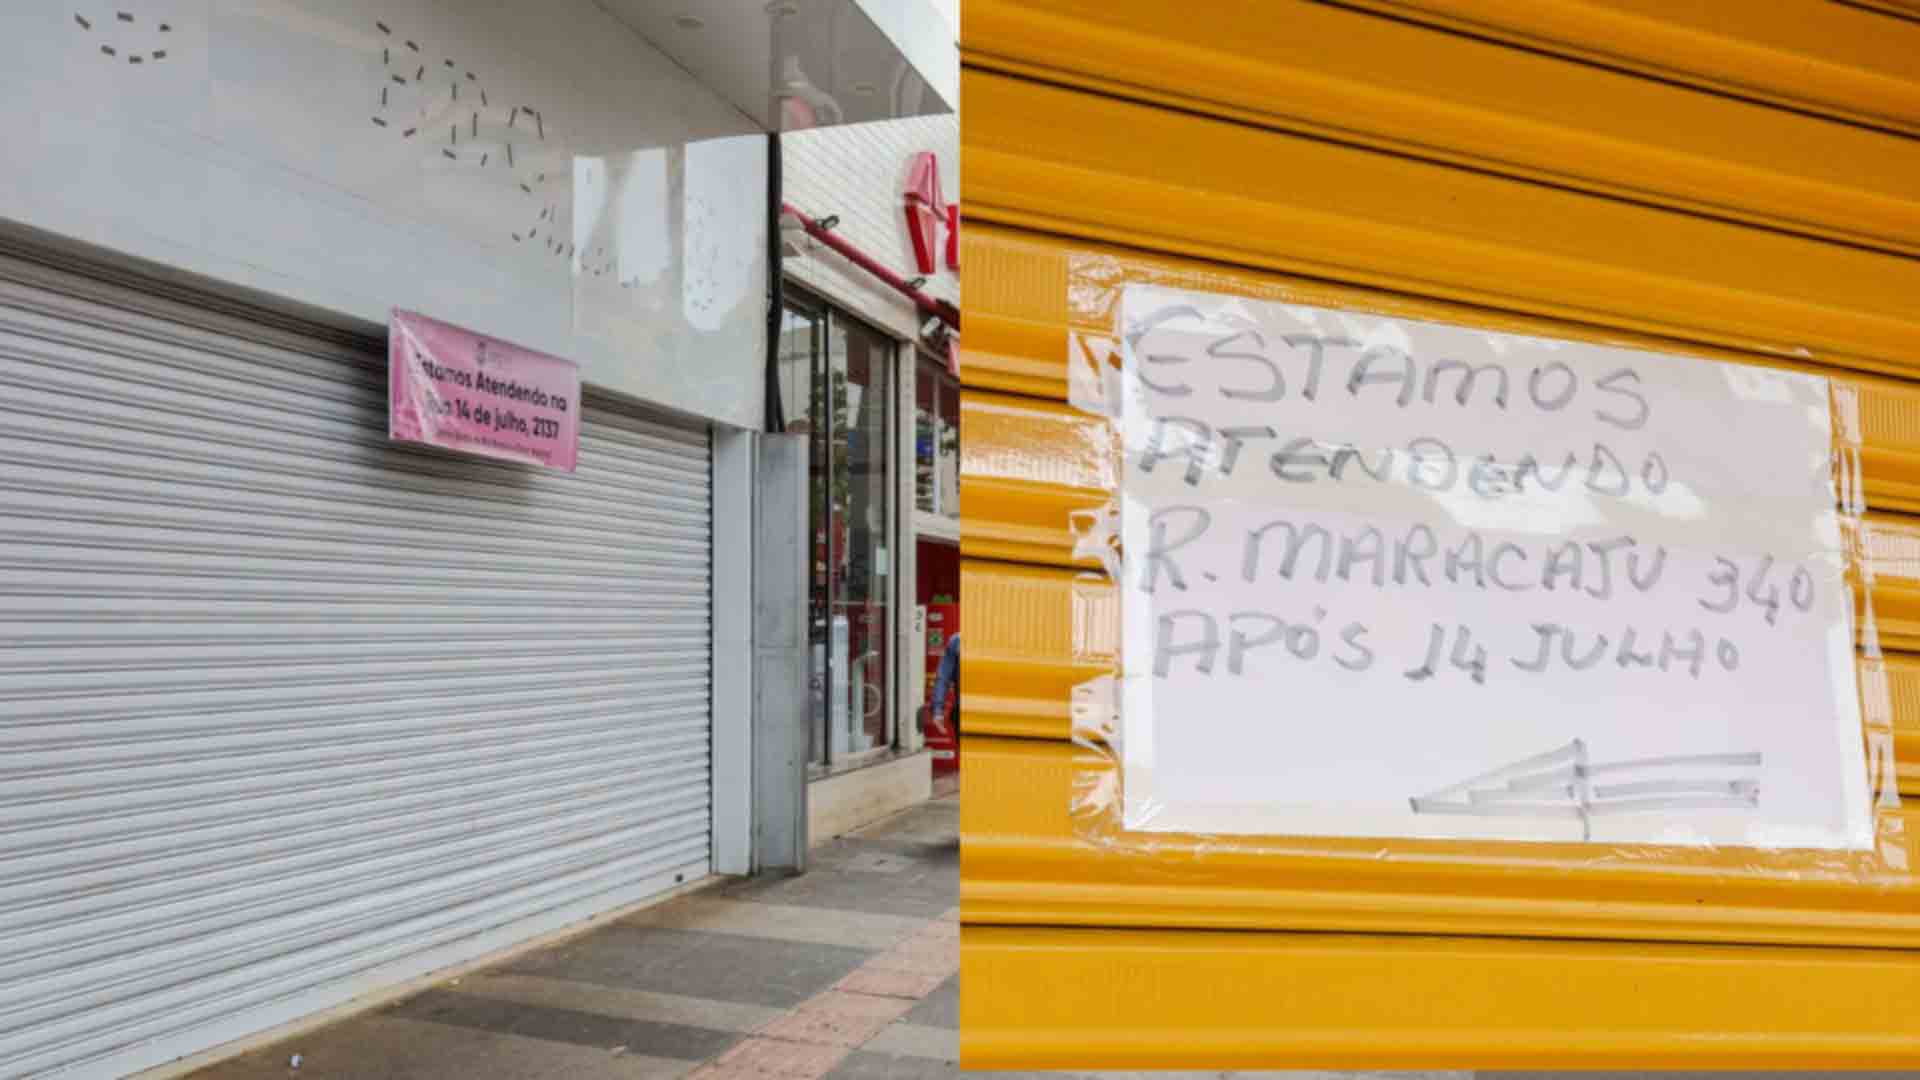 Estamos Atendendo na
Rua 14 de julho, 2137
ESTAMOS
ATENDENDO
R. MARACAJU 340
APÓS 14 JULHO